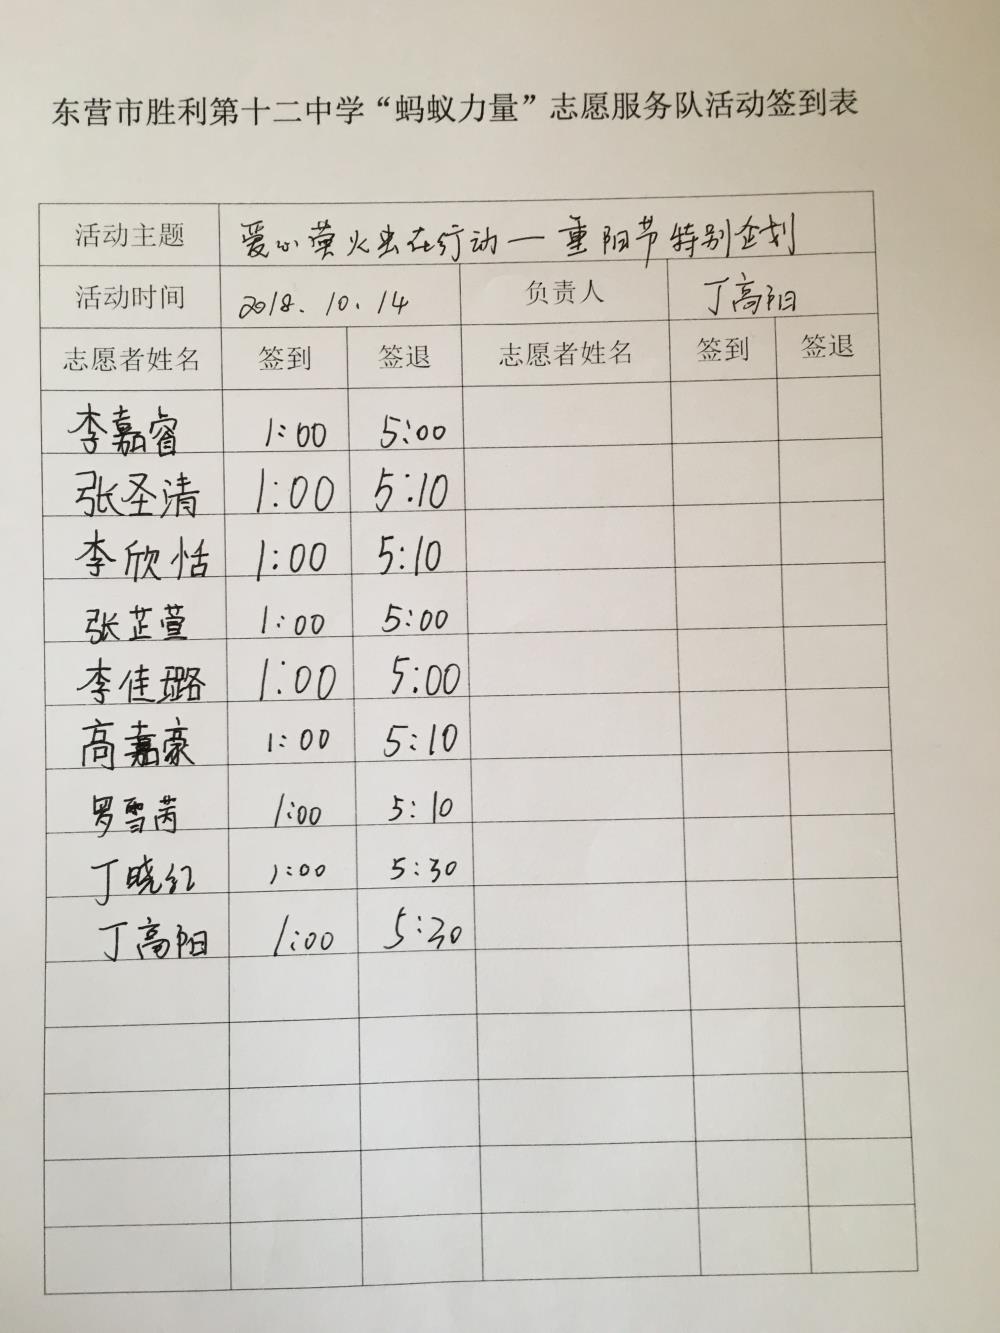 东营市胜利第十二中学“蚂蚁力量”志愿服务队活动签到表
活动主题 爱心萤火虫在行动—重阳节特别企划
活动时间 2018.10.14 负责人 丁高阳
志愿者姓名 签到 签退 志愿者姓名 签到 签退
李嘉睿 1:00 5:00
张圣清 1:00 5:10
李欣恬 1:00 5:10
张芷萱 1:00 5:00
李佳璐 1:00 5:00
高嘉豪 1:00 5:10
罗雪芮 1:00 5:10
丁晓红 1:00 5:30
丁高阳 1:00 5:30